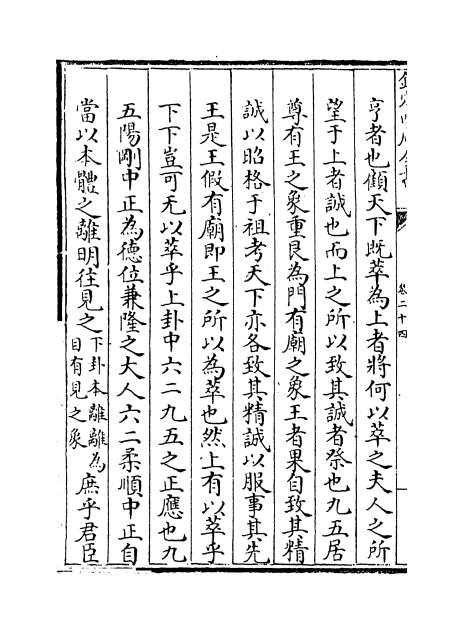 亨者也顧天下既萃為上者將何以萃之夫人之所
望于上者誠也而上之所以致其誠者祭也九五居
尊有王之象重艮為門有廟之象王者果自致其精
誠以昭格于祖考天下亦各致其精誠以服事其先
王是王假有廟即王之所以為萃也然上有以萃乎
下下豈可无以萃乎上卦中六二九五之正應也九
五陽剛中正為德位兼隆之大人六二柔順中正自
當以本體之離明往見之下卦本離離為目有見之象庶乎君臣
卷二十四